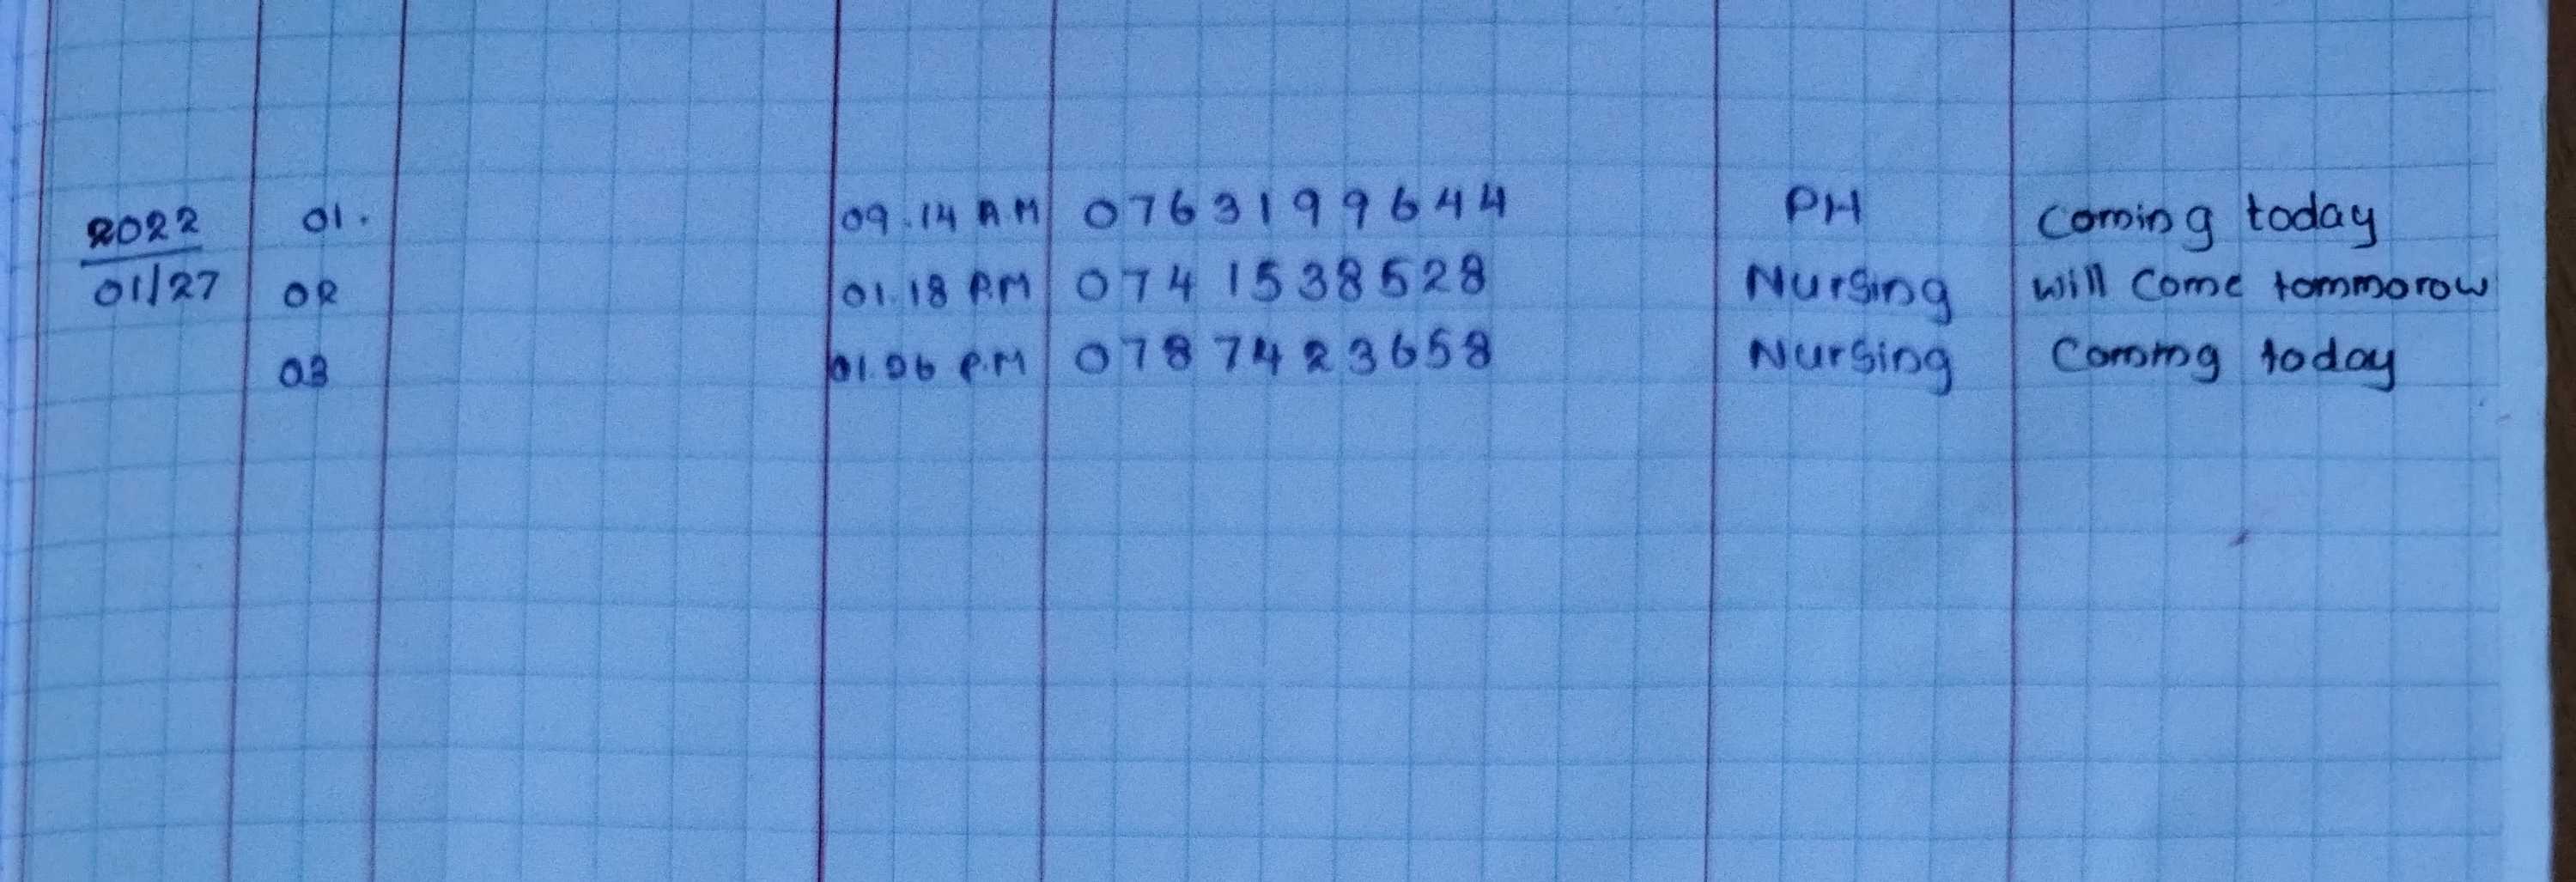 2022 01. 09.14 AM 0763199644 PH Coming today
01/27 02 01.18 P.M 0741538528 Nursing will come tommorow
03 P.M 0787423658 Nursing Coming today